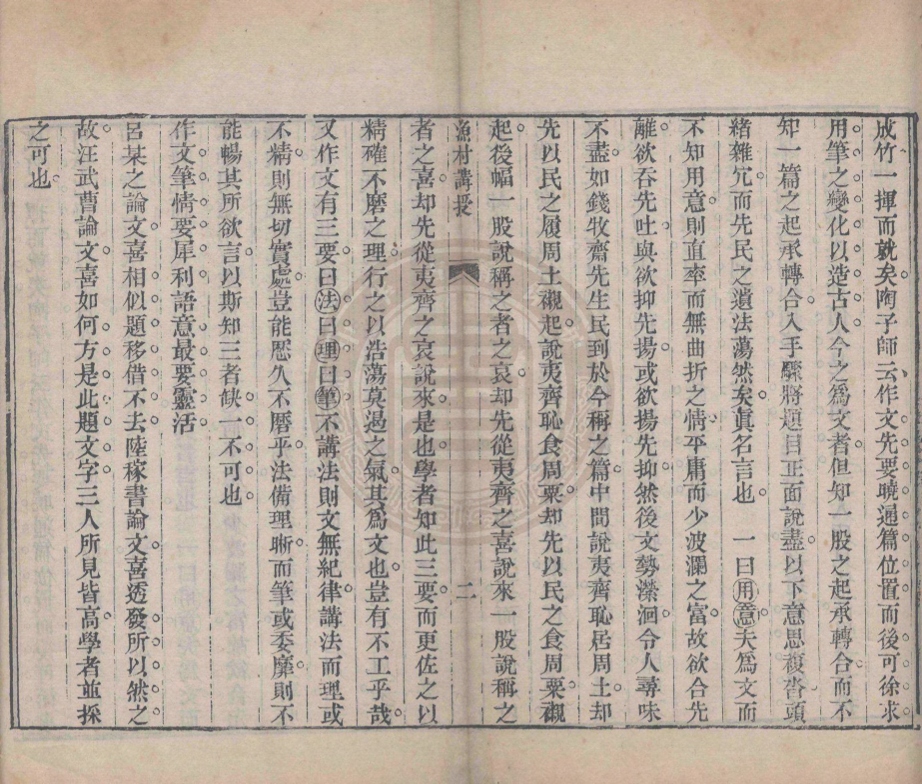 成竹一揮而就矣陶子師云作文先要曉通篇位置而後可徐求
用筆之變化以造古人今之爲文者但知一股之起承轉合而不
知一篇之起承轉合入手驟將題目正面說盡以下意思複沓頭
緒雜冗而先民之遺法蕩然矣眞名言也 一曰用意夫爲文而
不知用意則直率而無曲折之情平庸而少波瀾之富故欲合先
離欲吞先吐與欲抑先揚或欲揚先抑然後文勢瀠洄令人尋味
不盡如錢牧齋先生民到於今稱之篇中間說夷齊恥居周土却
先以民之履周土襯起說夷齊恥食周粟却先以民之食周粟襯
起後幅一股說稱之者之哀却先從夷齊之喜說來一股說稱之
漁村講授 二
者之喜却先從夷齊之哀說來是也學者知此三要而更佐之以
精確不磨之理行之以浩蕩莫遏之氣其爲文也豈有不工乎哉
又作文有三要曰法曰理曰筆不講法則文無紀律講法而理或
不精則無切實處豈能愿久不磨乎法備理晰而筆或委靡則不
能暢其所欲言以斯知三者缺一不可也
作文筆情要犀利語意最要靈活
呂某之論文喜相似題移借不去陸稼書論文喜透發所以然之
故汪武曹論文喜如何方是此題文字三人所見皆高學者並採
之可也